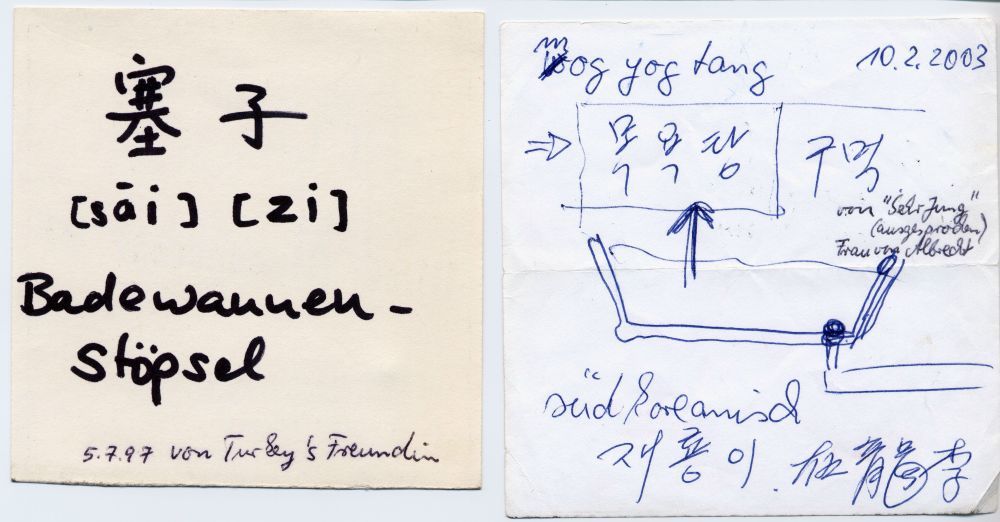 塞子
[sāi] [zi]
Badewannen-
Stöpsel
5.7.97 von Turkey's Freundin
mog yog tang 10.2.2003
목욕탕 구먹
von "Sehr Jung"
(ausgesprochen)
Frau von Albrecht
südkoreanisch
재룡이 龍李